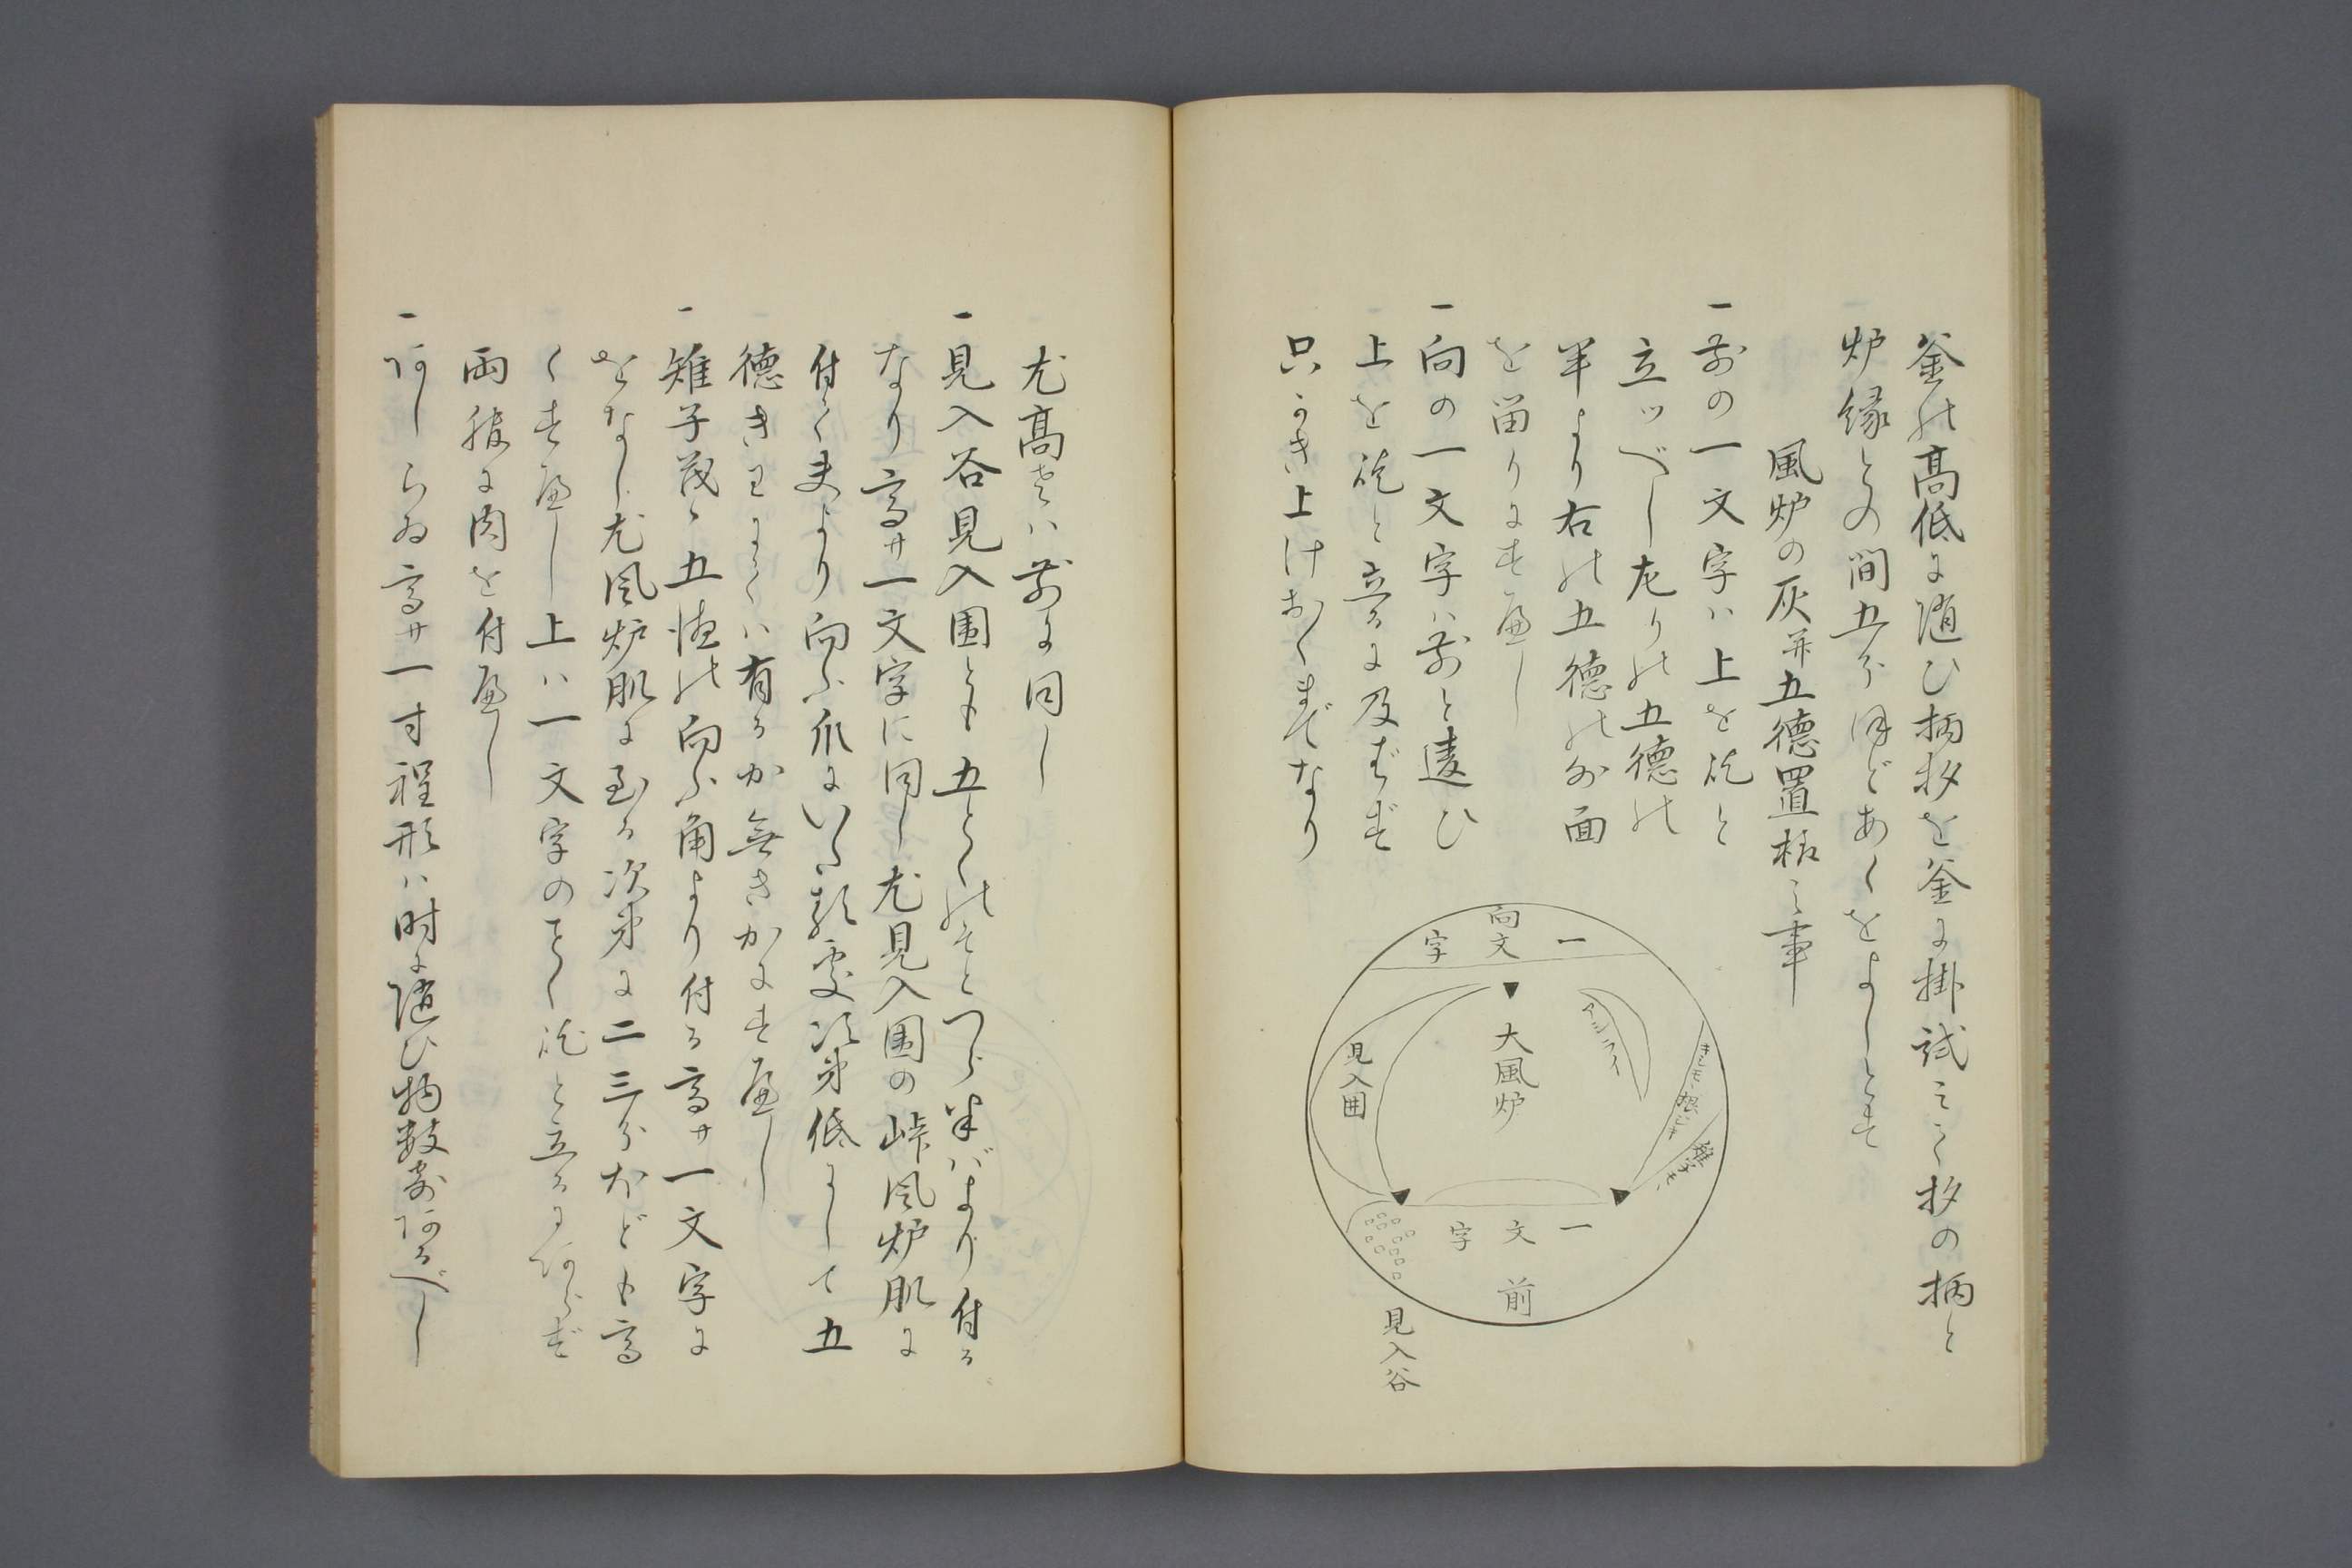 釜の高低に随ひ柄杓を釜に掛試ミて杓の柄と
炉縁との間五分ほどあくをよしとす
風炉の灰并五徳置様之事
一前の一文字ハ上を㐂と
立ッべし左りの五徳の
半より右の五徳の外面
を留りにすべし
一向の一文字ハ前と違ひ
上を
と立るに及ばず
只かき上けおくまでなり
向
一文字
大風炉
アシライ
見入囲
雉子
一文字
前
見入谷
尤高さハ前に同し
一見入谷見入囲とも五とくのそとつら半バより付る
なり高サ一文字に同し尤見入囲の峠風炉肌に
付く夫より向ふ爪にいた
次第低にして五
徳きわにてハ有るか無きかにすべし
一雉子
五徳の向ふ角より付る高サ一文字に
をなし尤風炉肌に至る次第に二三分ほども高
くすべし上ハ一文字のごとく
と立るにあらず
両
に肉を付べし
一あしらゐ高サ一寸程形ハ時に随ひ物数寄あるべし